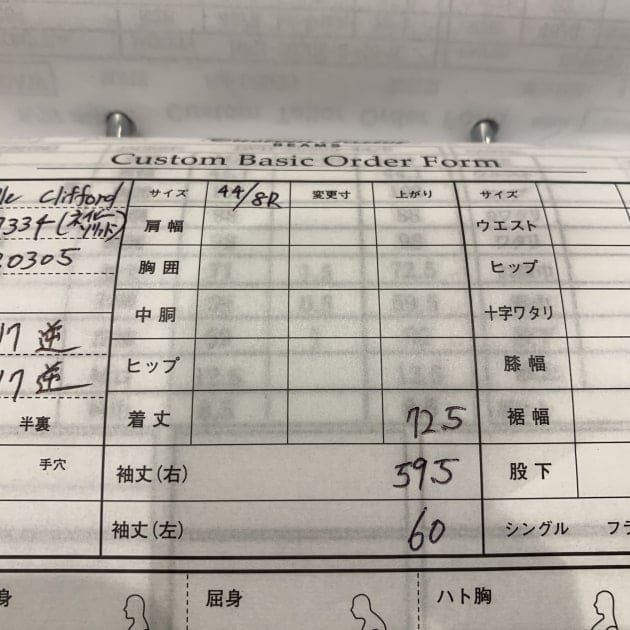 BEAMS
Custom Basic Order Form
Clifford サイズ 44/8R 変更寸 上がり サイズ
7334 (ネイビーソリッド) 肩幅 ウエスト
20305 胸囲 ヒップ
中胴 十字ワタリ
17 逆 ヒップ 膝幅
17 逆 着丈 72.5 裾幅
半裏
手穴 袖丈(右) 59.5 股下
袖丈(左) 60 シングル フラ
身 屈身 ハト胸